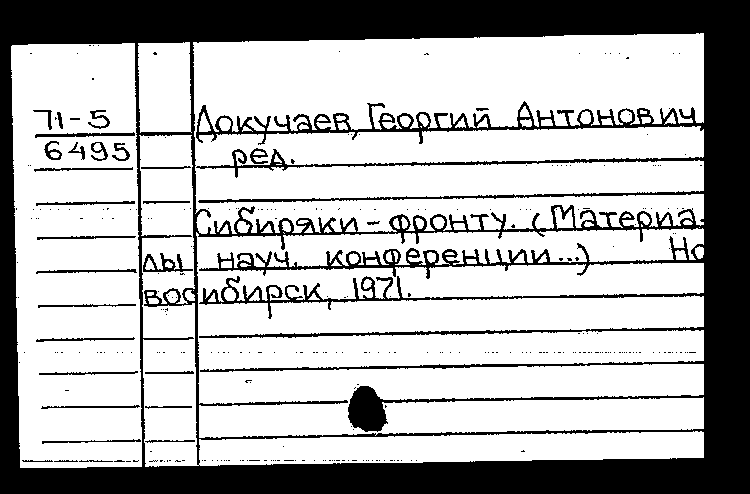 71-5 Докучаев, Георгий Антонович,
6495 ред.
Сибиряки - фронту. (Материа-
лы науч. конференции...) Но
восибирск, 1971.